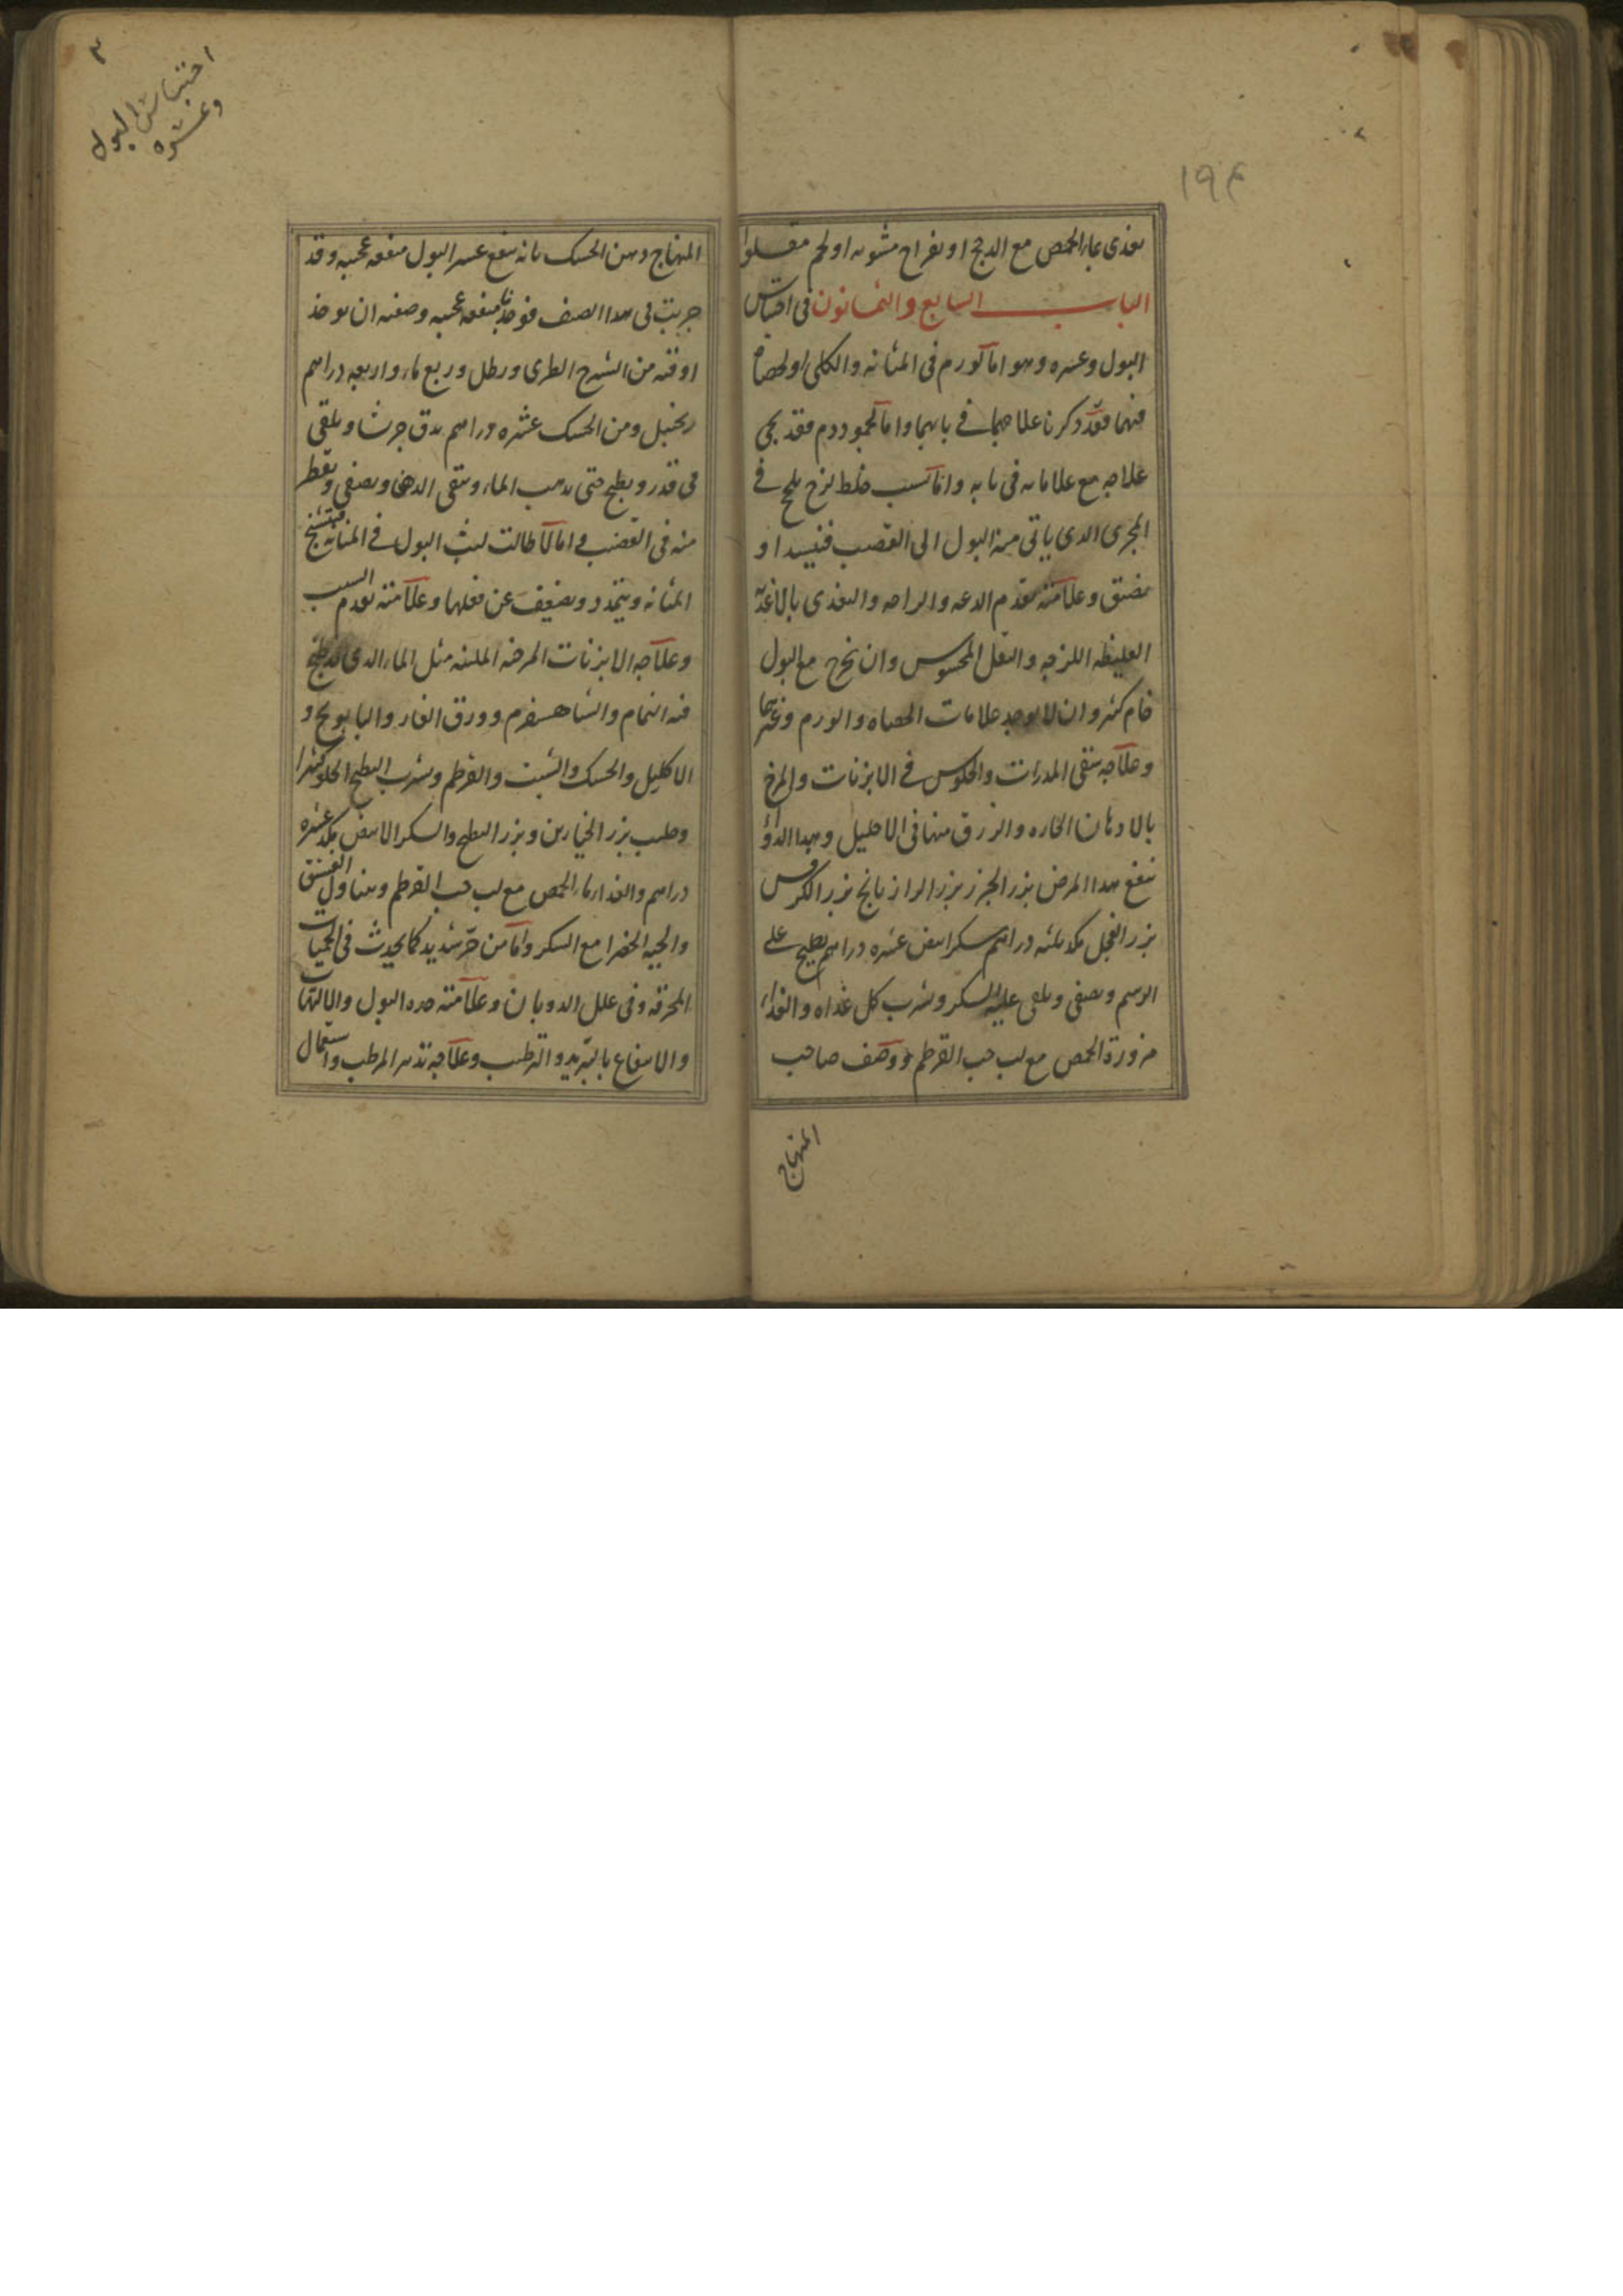 ١٩٤
يغذى بماء الحمص مع الدجج او بفراخ مشويه او لحم مقلوا
الباب السابع والثمانون فى احتباس
البول وعسره وهو اما لورم فى المثانه والكلى او لحصاة
فيهما فقد ذكرنا علاجهما فى بابهما واما لجمود دم فقد يجى
علاجه مع علاماته فى بابه واما بسبب خلط لزج يلحج فى
المجرى الذى ياتى منه البول الى القضيب فينسد او
يضيق وعلامته تقدم الدعه والراحه والتغذى بالاغذيه
الغليظه اللزجه والثقل المحسوس وان يخرج مع البول
خام كثير وان لا يوجد علامات الحصاه والورم وغيرهما
وعلاجه سقى المدرات والجلوس فى الابزنات والمرخ
بالادهان الحاره والزرق منها فى الاحليل وهذا الدواء
ينفع هذا المرض بزر الجزر بزر الرازيانج بزر الكرفس
بزر الفجل مكد ثلثه دراهم سكر ابيض عشره دراهم يطبخ على
الرسم ويصفى ويلقى عليه السكر ويشرب كل غداه والغذاء
مزورة الحمص مع لب حب القرطم ووصف صاحب
المنهاج
٣
احتباس البول
وعسره
المنهاج دهن الحسك بانه ينفع عسر البول منفعه عجيبه وقد
جربت فى هذا الصنف فوجدنا منفعه عجيبه وصفته ان يوخذ
اوقيه من الشيرج الطرى ورطل وربع ماء واربعه دراهم
زنجبيل ومن الحسك عشره دراهم يدق جرشا ويلقى
فى قدر ويطبخ حتى يذهب الماء ويبقى الدهن ويصفى ويقطر
منه فى القضيب واما لاطالت لبث البول فى المثانه فيتشنج
المثانه ويتمدد ويضعف عن فعلها وعلامته تقدم السبب
وعلاجه الابزنات المرخيه الملينه مثل الماء الذى قد طبخ
فيه النمام والشاهسفرم وورق الغار والبابونج و
الاكليل والحسك والشبت والقرطم ويشرب البطيخ الحلو كثيرا
وحليب بزر الخيارين وبزر البطيخ والسكر الابيض مكد عشره
دراهم والغذاء ماء الحمص مع لب حب القرطم ويتناول الفستق
والحبه الخضرا مع السكر واما من حر شديد كما يحدث فى الحميات
المحرقه وفى علل الذوبان وعلامته حده البول والالتهاب
والانتفاع بالتبريد والترطيب وعلاجه تدبير المرطب واستعمال